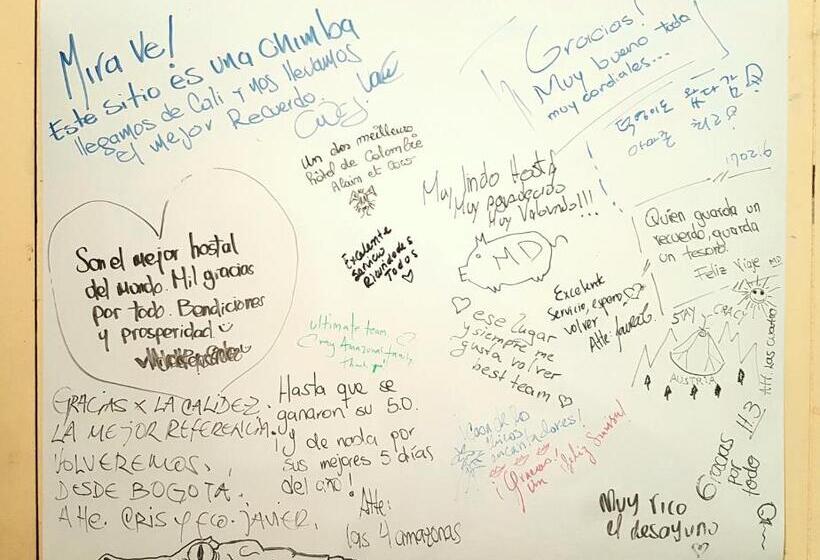 Mira Ve!
Este sitio es una chimba
llegamos de Cali y nos llevamos
el mejor Recuerdo.
Gracias!
Muy bueno toda
muy cordiales...
1702.6
Un dos meilleurs
hôtel de Colombie
Alain et Coco
Muy lindo Hostal
Muy parecido
Muy Valorado!!!
MD
Son el mejor hostal
del mundo. Mil gracias
por todo. Bendiciones
y prosperidad
Excelente
Servicio
Bienvenidos
Todos
Quien guarda un
recuerdo, guarda
un tesoro.
Feliz Viaje MD
Excelente
Servicio, espero
volver
Atte:
ese lugar
y siempre me
gusta volver
best team
ultimate team
my Amazonas family
Thank you!
STAY CRACY
AUSTRIA
Att: Las cuatro!
GRACIAS X LA CALIDEZ.
LA MEJOR REFERENCIA.
VOLVEREMOS.
DESDE BOGOTA.
Atte. CRIS y FCO. JAVIER.
Hasta que se
ganaron su 5.0.
¡y de nada por
sus mejores 5 días
del año!
Atte:
las 4 amazonas
encantadores!
¡Gracias!
un feliz
Gracias
por
todo H.3
Muy rico
el desayuno